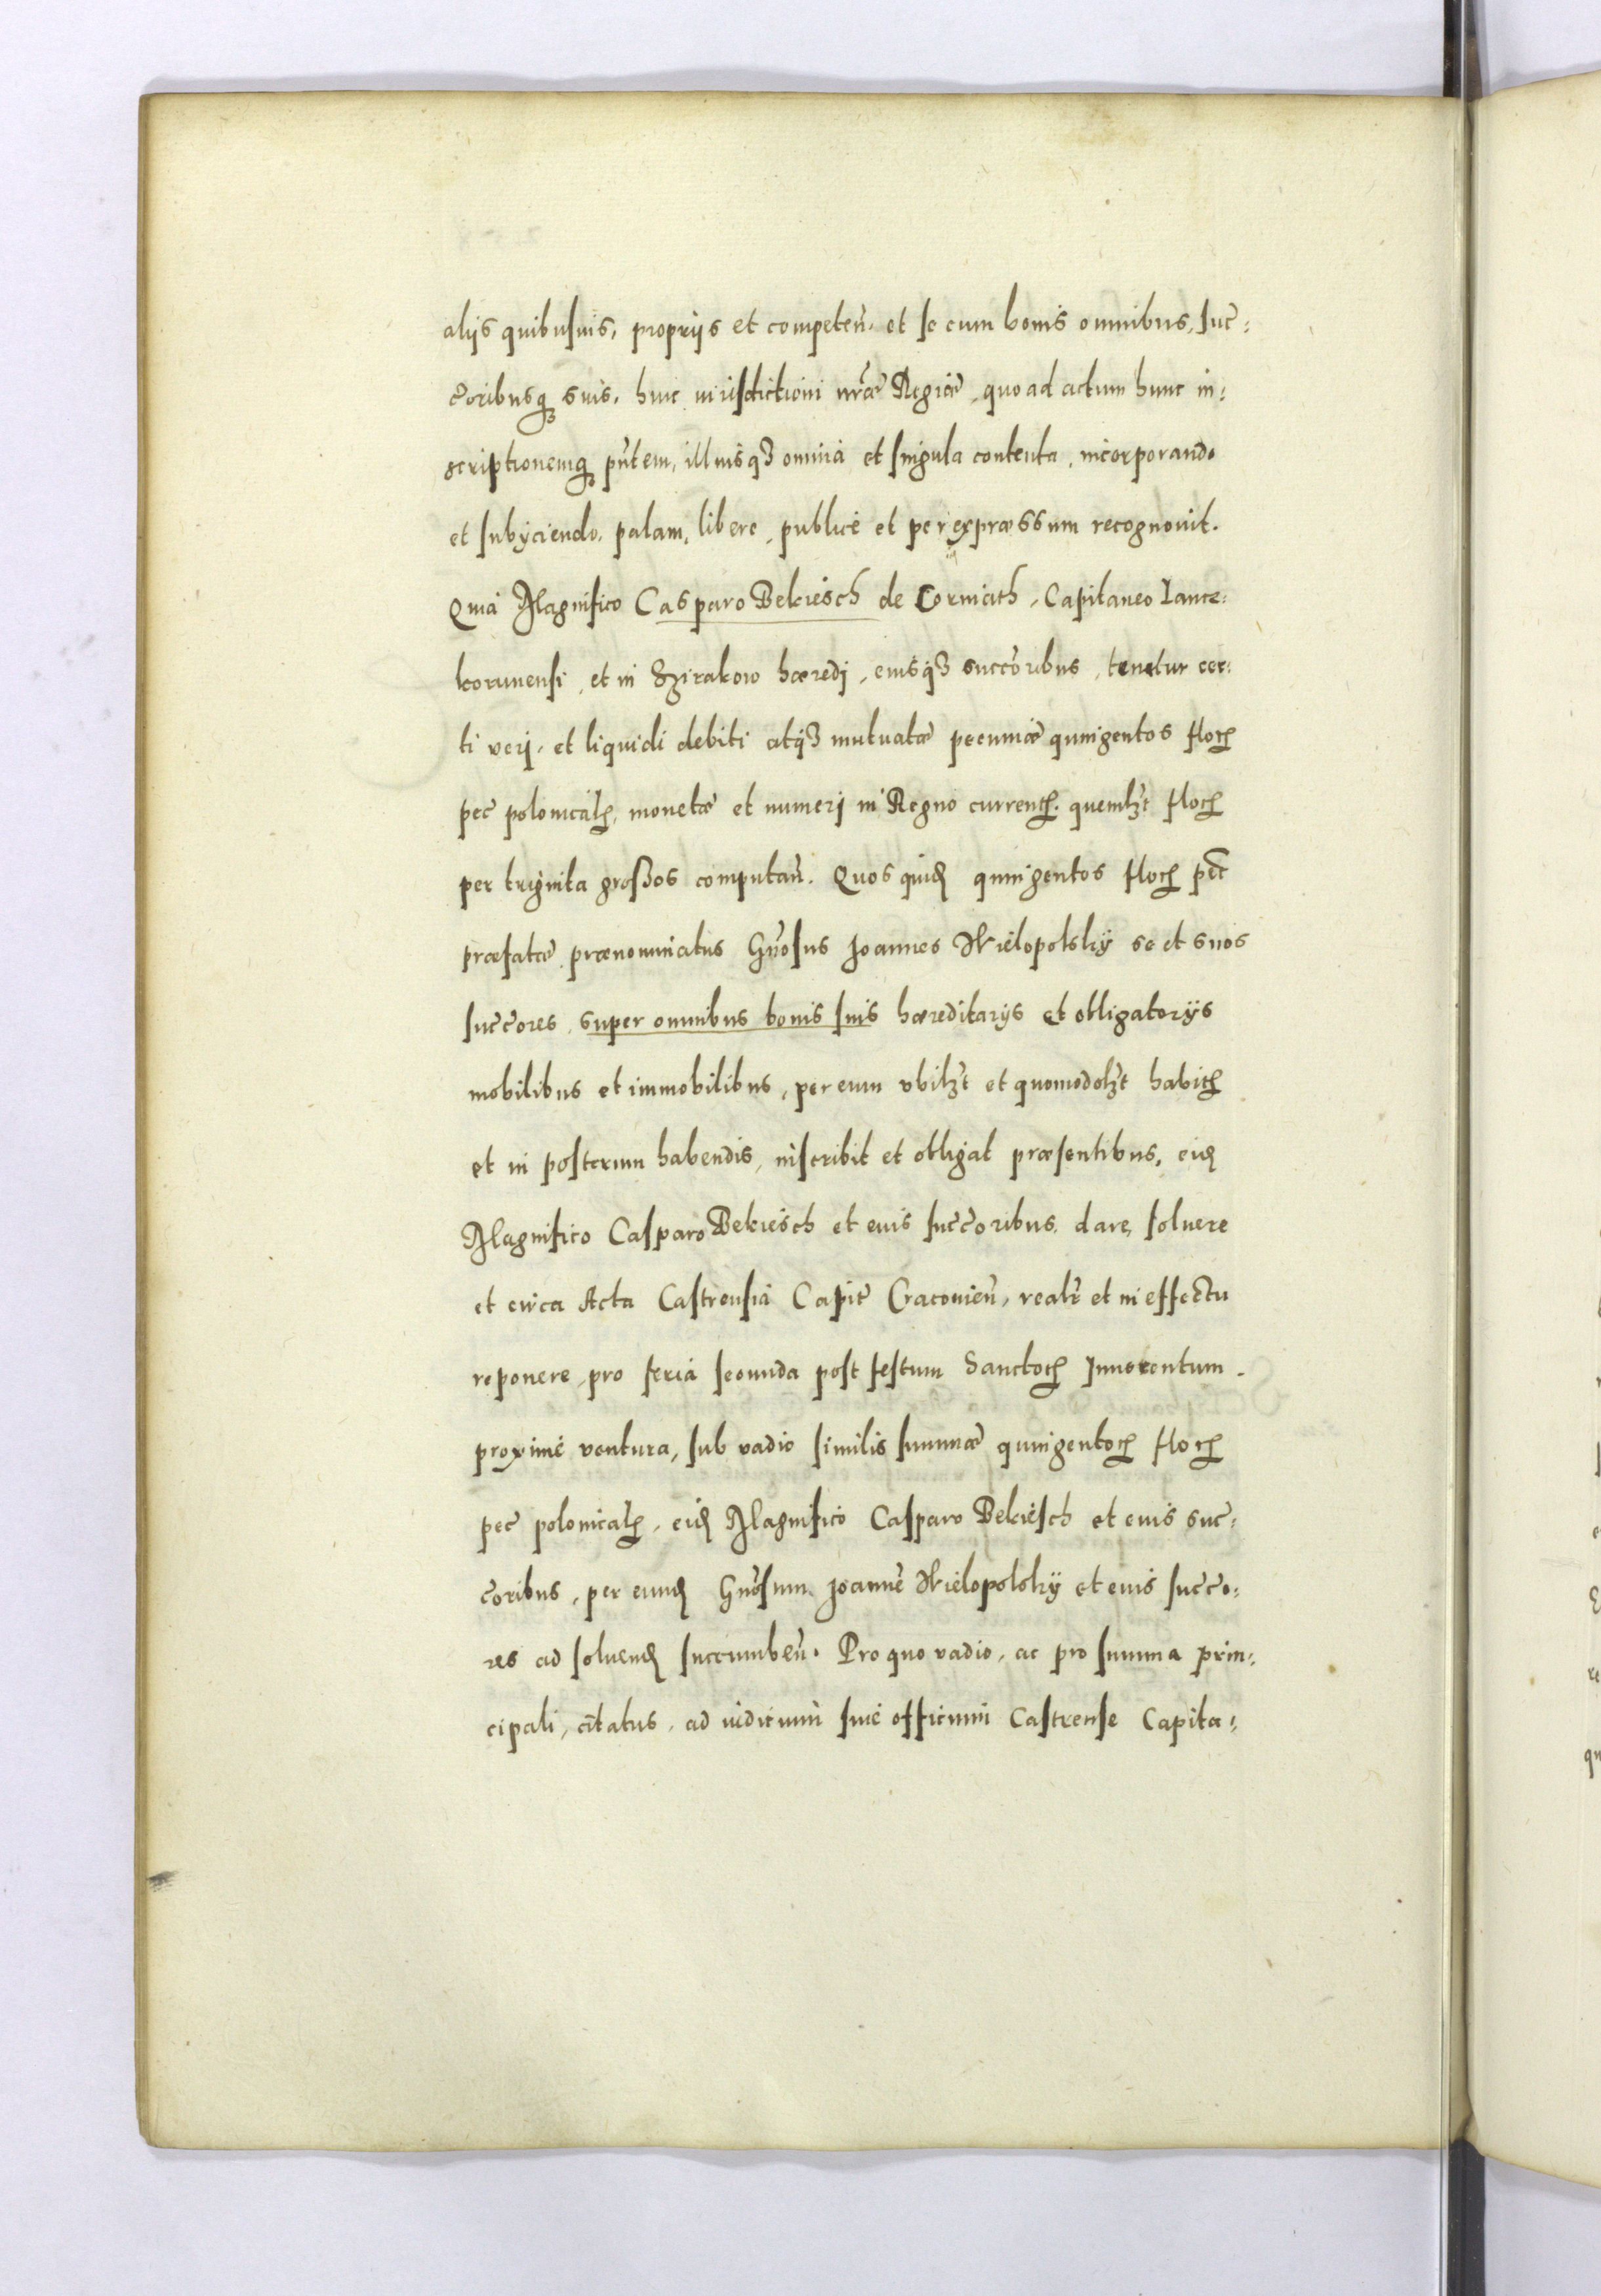 alijs quibusuis, proprijs et competeñ. et se cum bonis omnibus, suc¯:
c̃oribusq̃ suis, huic iurisdictioni nr̃æ Regiæ, quo ad actum hunc in:
scriptionemq̃ pñtem, illiusq̃ omnia et singula contenta, incorporando
et subijciendo, palam, libere, publice et per expræssum recognouit.
Quia Magnifico Casparo Bekiesch de Corniath, Capitaneo Lance:
korunensi, et in Szirakow hæredj, eiusq̃ succc̃oribus, tenetur cer:
ti verj, et liquidi debiti atq̃ mutuatæ pecuniæ quingentos floꝝ
pec̃ polonicalꝝ, monetæ et numerj in Regno currentꝝ. quemlꝫt floꝝ
per triginta großos computañ. Quos quidꝫ quingentos floꝝ pec̃
præfatæ prænominatus Gñosus Joannes Wielopolskÿ se et suos
succ̃ores, super omnibus bonis suis hæreditarijs et obligatorijs
mobilibus et immobilibus, per eum vbilꝫt et quomodolꝫt habitꝝ
et in posterum habendis, inscribit et obligat præsentibus, eidꝫ
Magnifico Casparo Bekiesch et eius succ̃oribus, dare, soluere
et circa Acta Castrensia Capit̃ Cracouieñ, realr̃ et in effectu
reponere, pro feria secunda post festum Sanctoꝝ Innocentum.
proxime ventura, sub vadio similis summæ quingentoꝝ floꝝ
pec̃ polonicalꝝ, eidꝫ Magnifico Casparo Bekiesch et eius suc¯:
c̃oribus, per eundꝫ Gñosum Joannẽ Wielopolskÿ et eius succ̃o:
res ad soluendꝫ succumbeñ. Pro quo vadio, ac pro summa prin:
cipali, citatus, ad iudicium siue officium Castrense Capita: